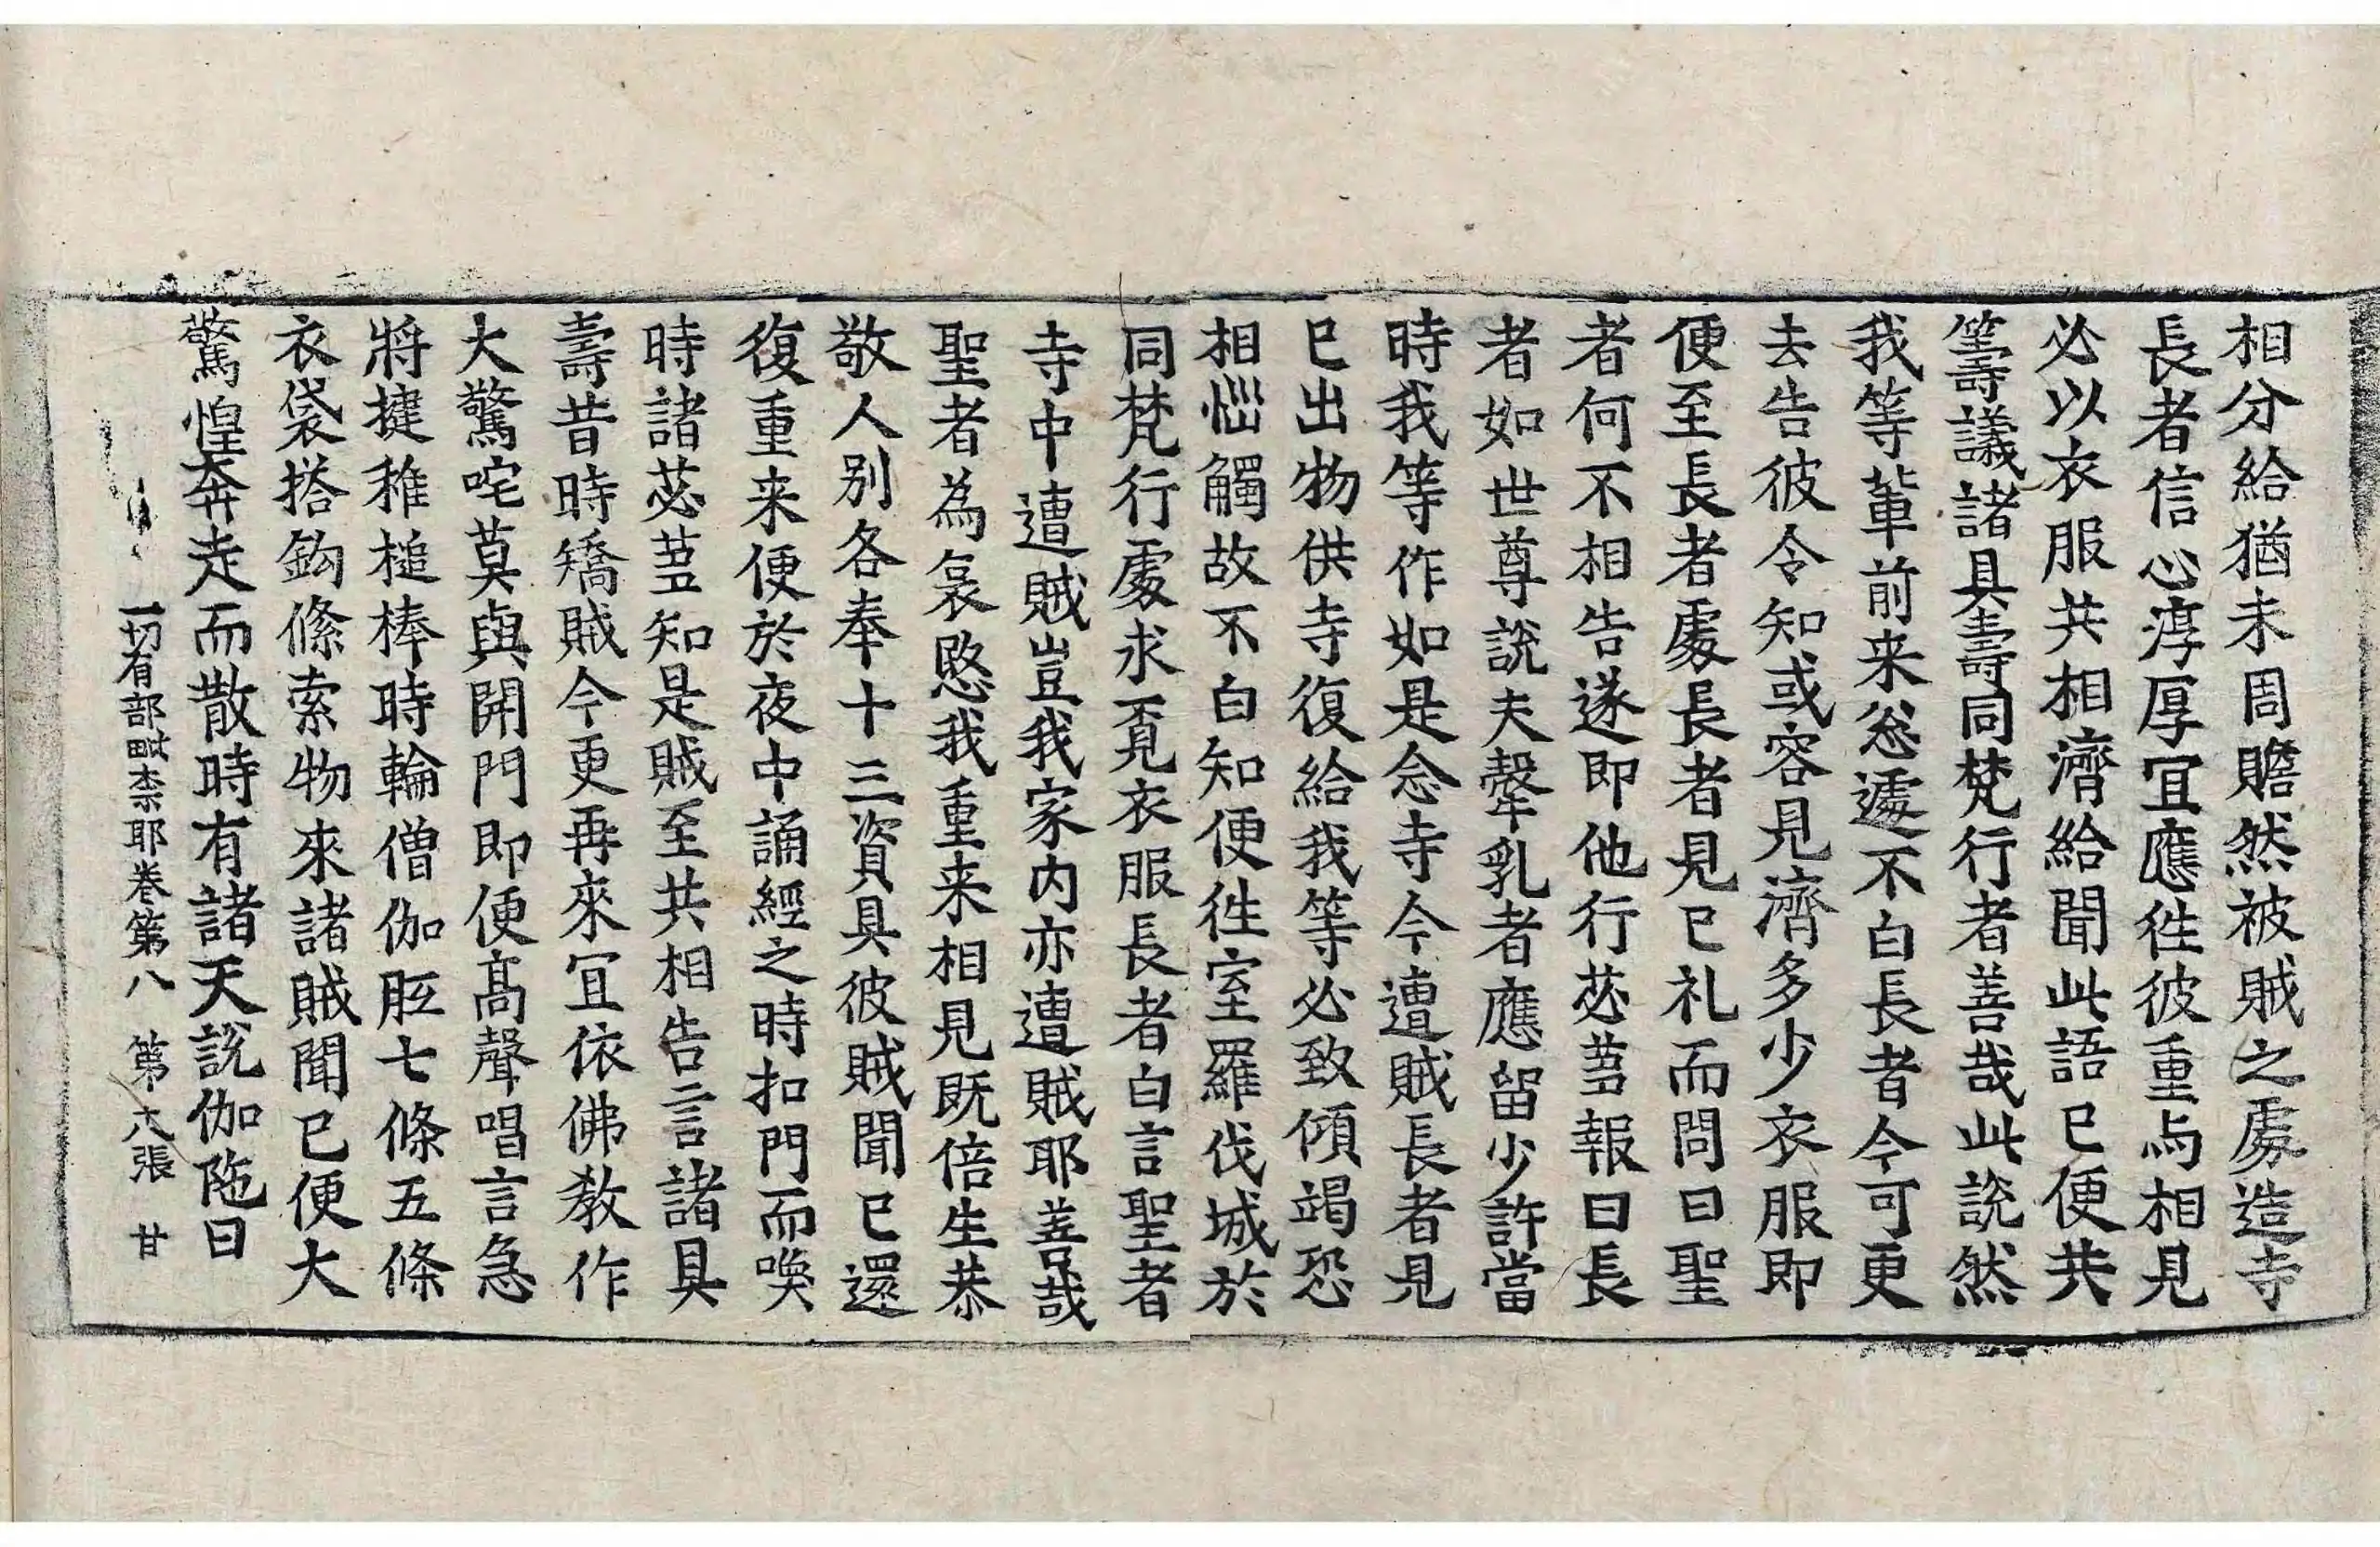 相分給猶未周贍然被賊之處造寺
長者信心淳厚冝應徃彼重与相見
必以衣服共相濟給聞此語已便共
籌議諸具壽同梵行者善哉此說然
我等輩前来怱遽不白長者今可更
去告彼令知或容見濟多少衣服即
便至長者處長者見已礼而問曰聖
者何不相告遂即他行苾蒭報曰長
者如世尊說夫𤛓乳者應留少許當
時我等作如是念寺今遭賊長者見
已出物供寺復給我等必致傾竭恐
相惱觸故不白知便徃室羅伐城於
同梵行處求覔衣服長者白言聖者
寺中遭賊豈我家内亦遭賊耶善哉
聖者為哀愍我重来相見既倍生恭
敬人别各奉十三資具彼賊聞已還
復重来便於夜中誦經之時扣門而喚
時諸苾蒭知是賊至共相告言諸具
壽昔時矯賊今更再來冝依佛教作
大驚咤莫與開門即便髙聲唱言急
將揵稚槌棒時輪僧伽胝七條五條
衣袋搭鈎絛索物來諸賊聞已便大
驚惶奔走而散時有諸天說伽陁曰
一切有部毗柰耶卷第八　第六張　甘